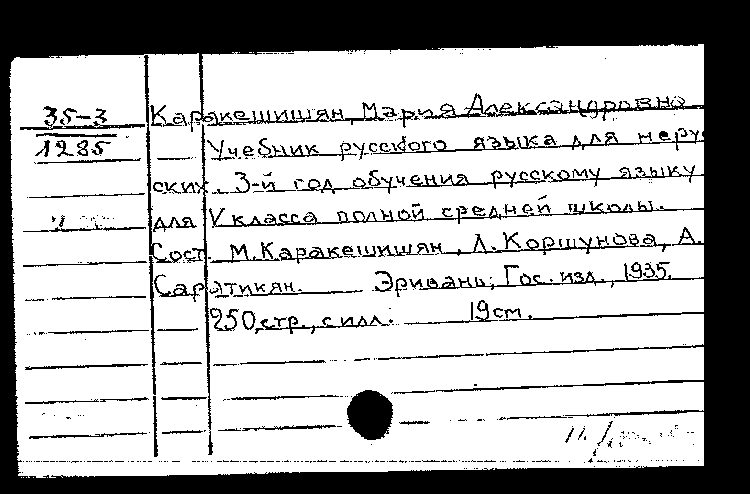 35-3
1285
Каракешишян, Мария Александровна
Учебник русского языка для неру
ских. 3-й год обучения русскому языку
для V класса полной средней школы.
Сост. М. Каракешишян, Л. Коршунова, А.
Саратикян. Эривань; Гос. изд., 1935.
250 стр., с илл. 19 см.